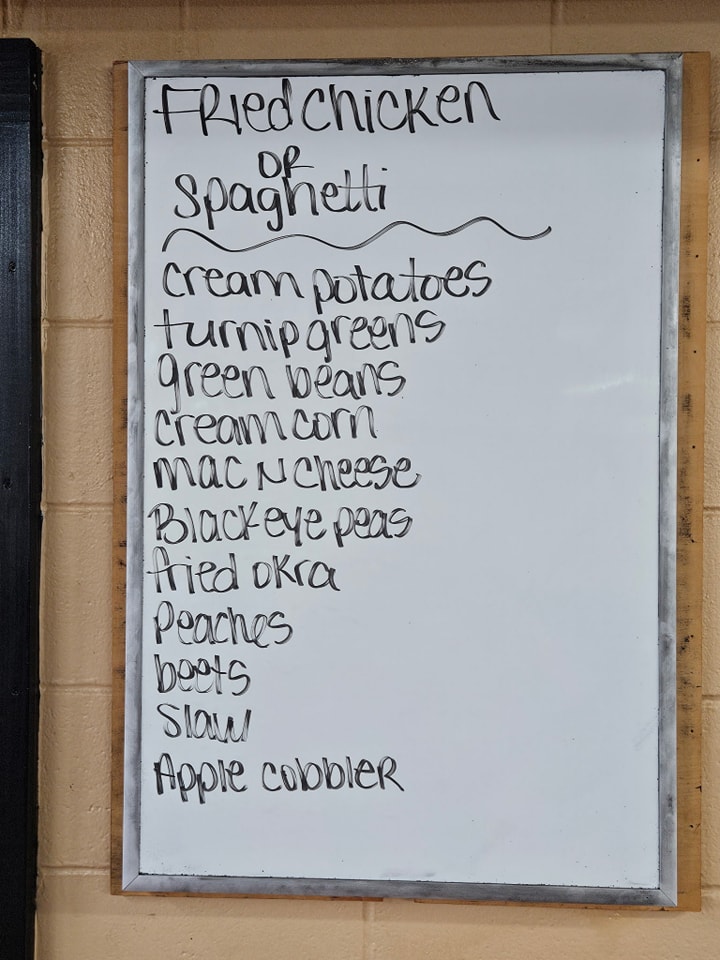 Fried chicken
OR
Spaghetti
cream potatoes
turnip greens
green beans
cream corn
mac N cheese
Black eye peas
fried okra
Peaches
beets
Slaw
Apple cobbler